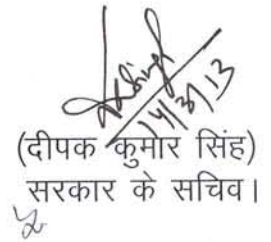 14/3/13
(दीपक कुमार सिंह)
सरकार के सचिव।